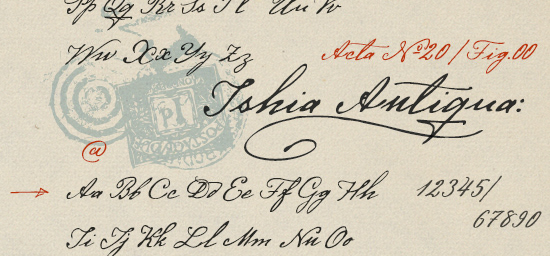 Pp Qq Rr Ss Tt Uu Vv
Ww Xx Yy Zz
Acta Nº20 / Fig.00
Ishia Antiqua:
@
Aa Bb Cc Dd Ee Ff Gg Hh
12345/
67890
Ii Jj Kk Ll Mm Nn Oo